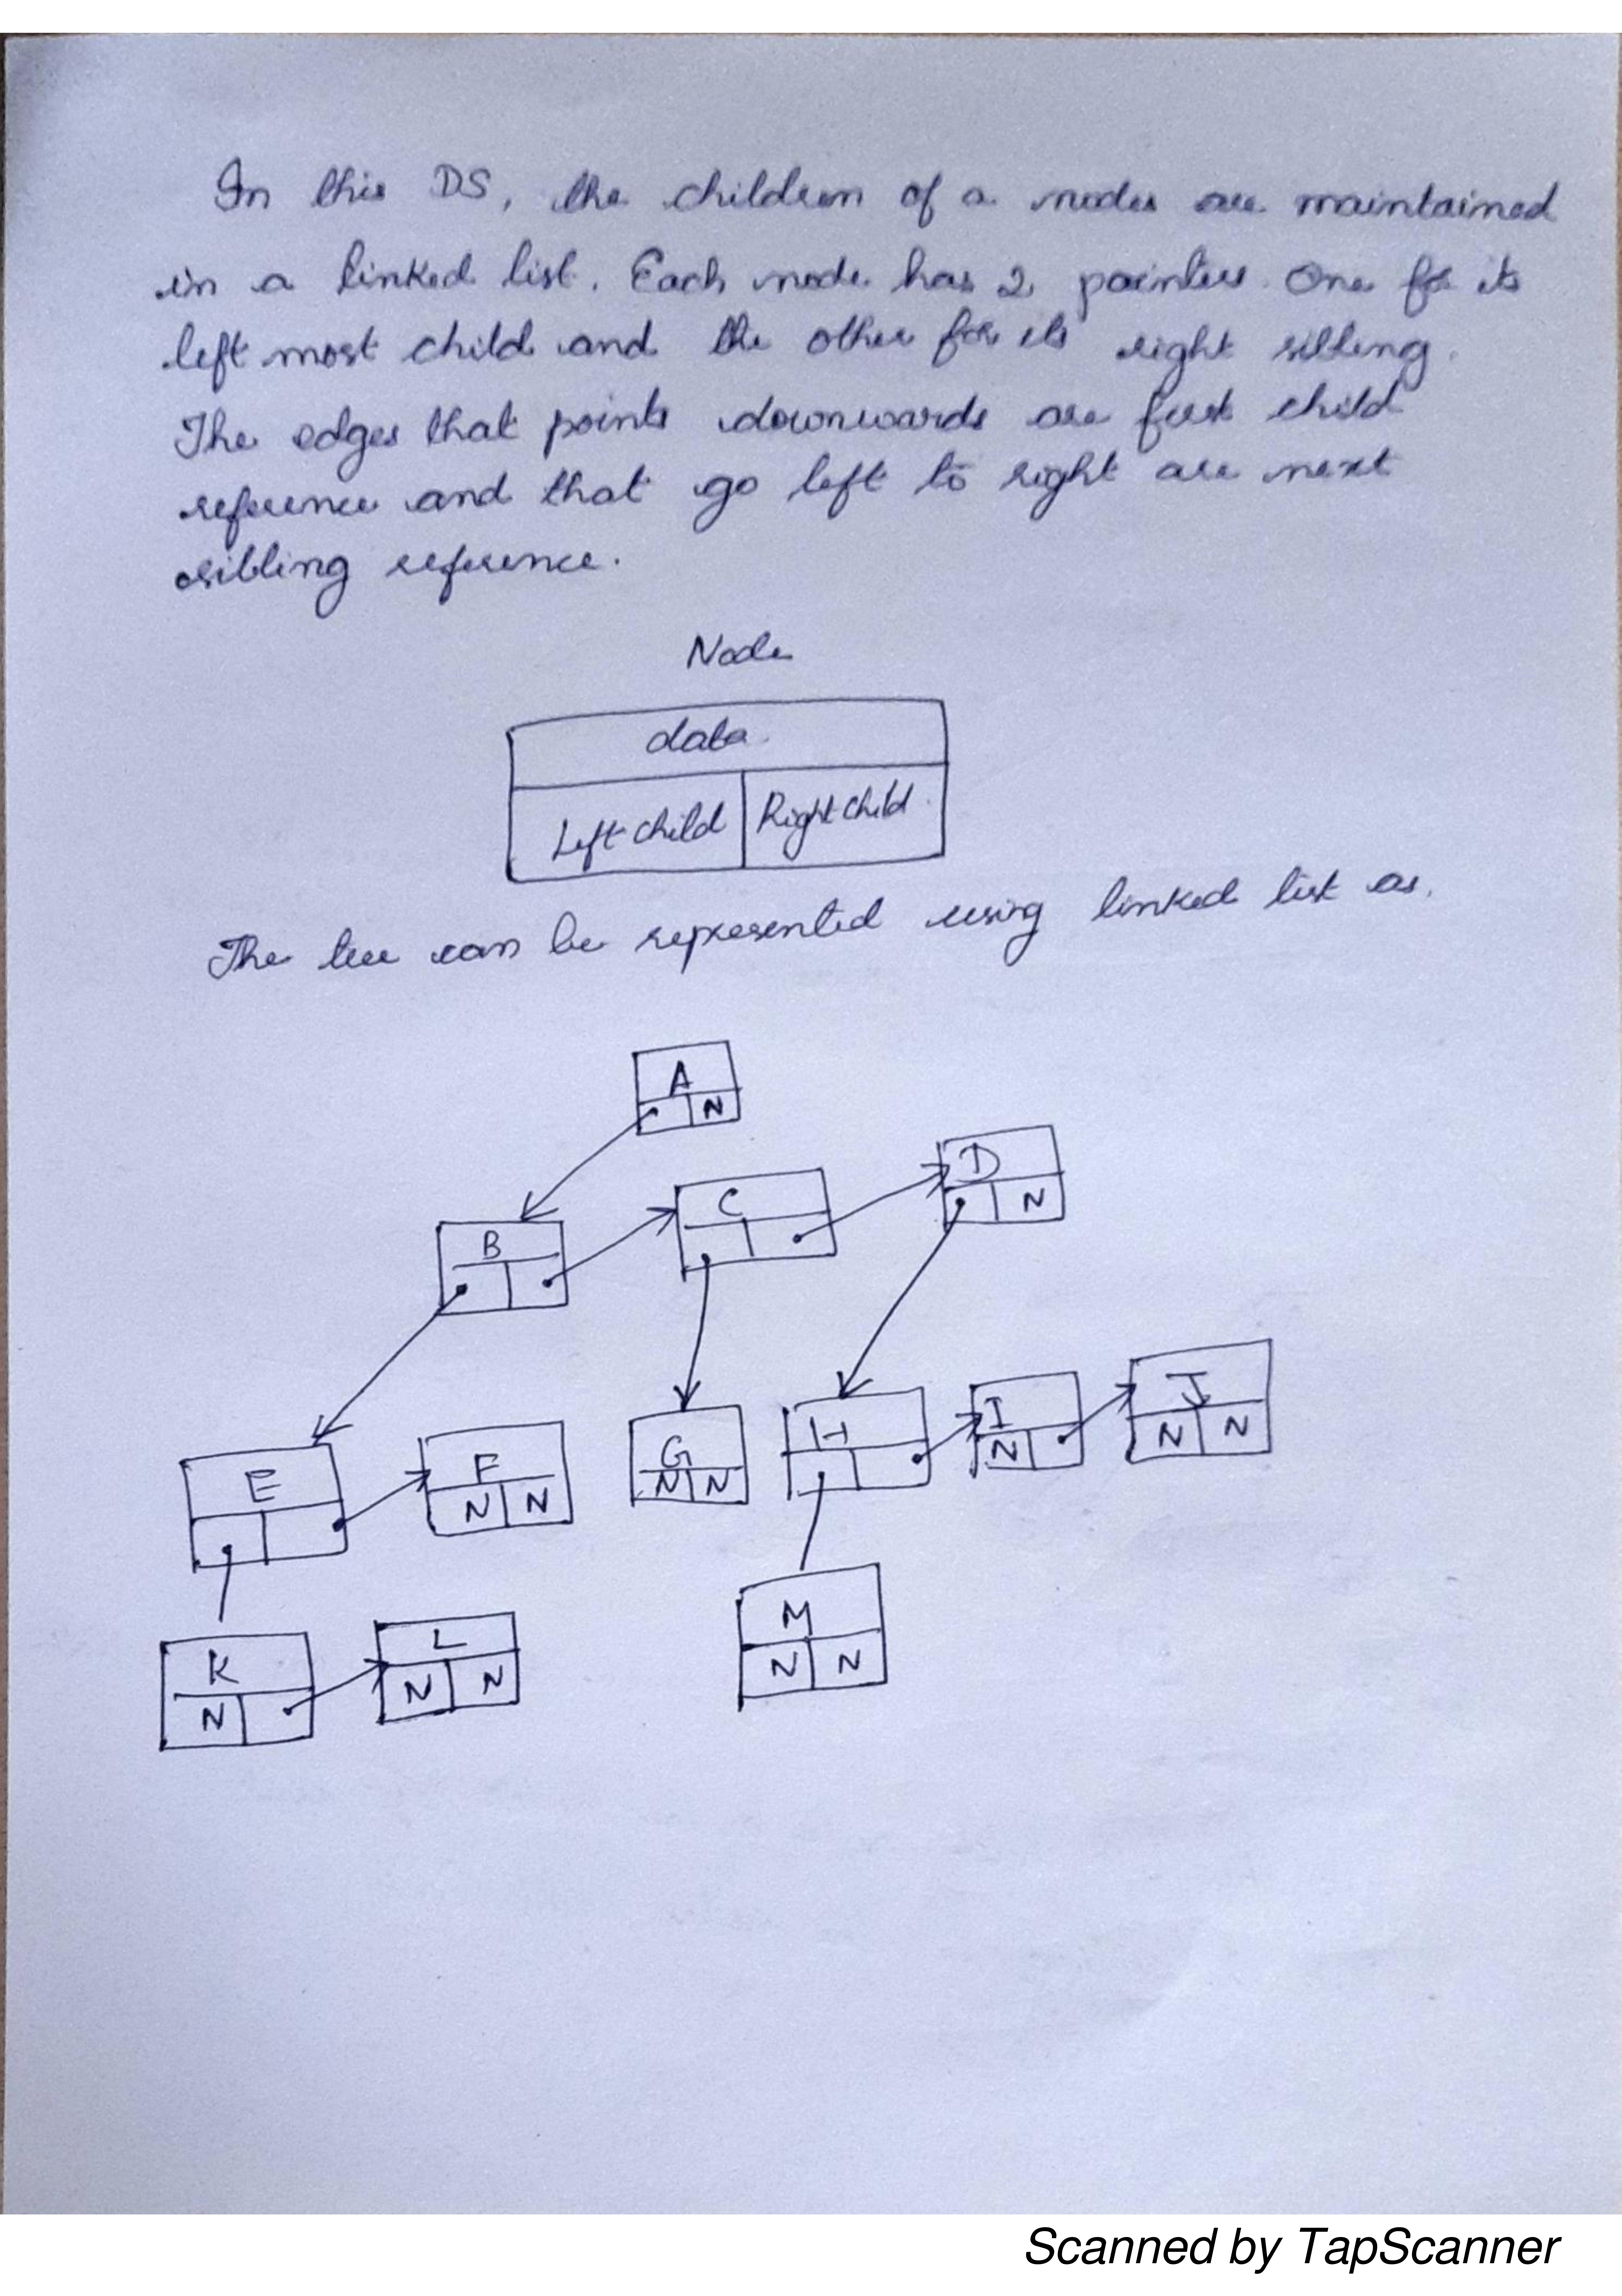 In this DS, the children of a nodes are maintained
in a linked list. Each node has 2 pointers. One for its
left most child and the other for its right sibling.
The edges that points downwards are first child
reference and that go left to right are next
sibling reference.
Node
data
Left child Right child
The tree can be represented using linked list as.
A
N
D
N
C
B
E
F
N N
G
N N
H
I
N
J
N N
K
N
L
N N
M
N N
Scanned by TapScanner